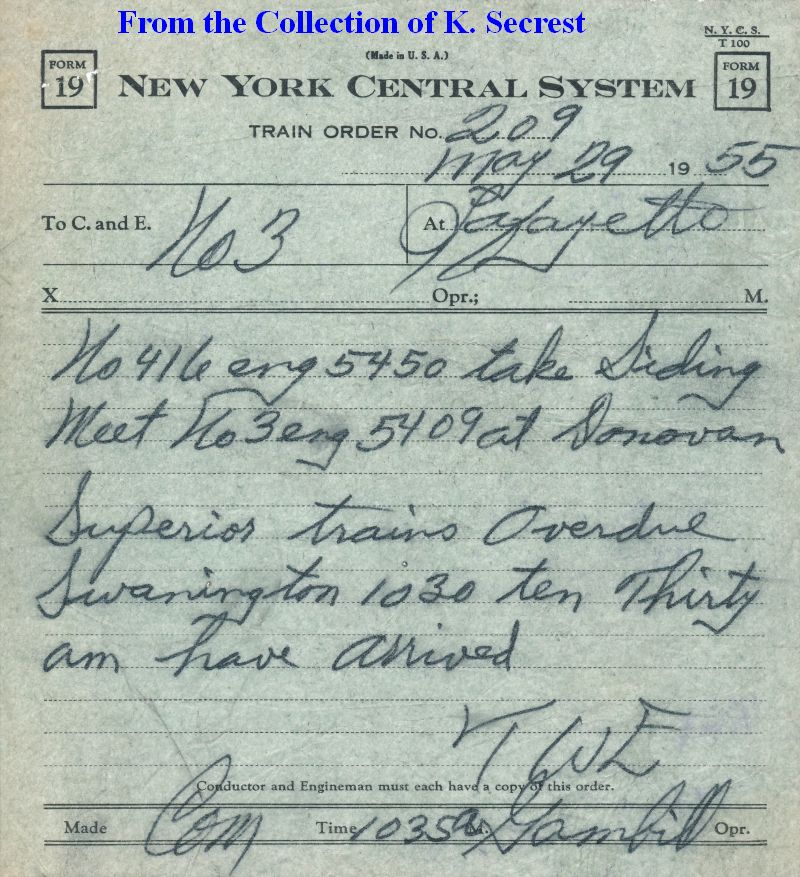 From the Collection of K. Secrest
N. Y. C. S.
T 100
(Made in U. S. A.)
FORM 19 NEW YORK CENTRAL SYSTEM FORM 19
TRAIN ORDER No. 209
May 29 19 55
To C. and E. No 3 At Lafayette
X Opr.; M.
No 416 eng 5450 take Siding
Meet No 3 eng 5409 at Donovan
Superior trains Overdue
Swanington 1030 ten Thirty
am have arrived
TWE
Conductor and Engineman must each have a copy of this order.
Made Com Time 1035 a M. Gambill Opr.